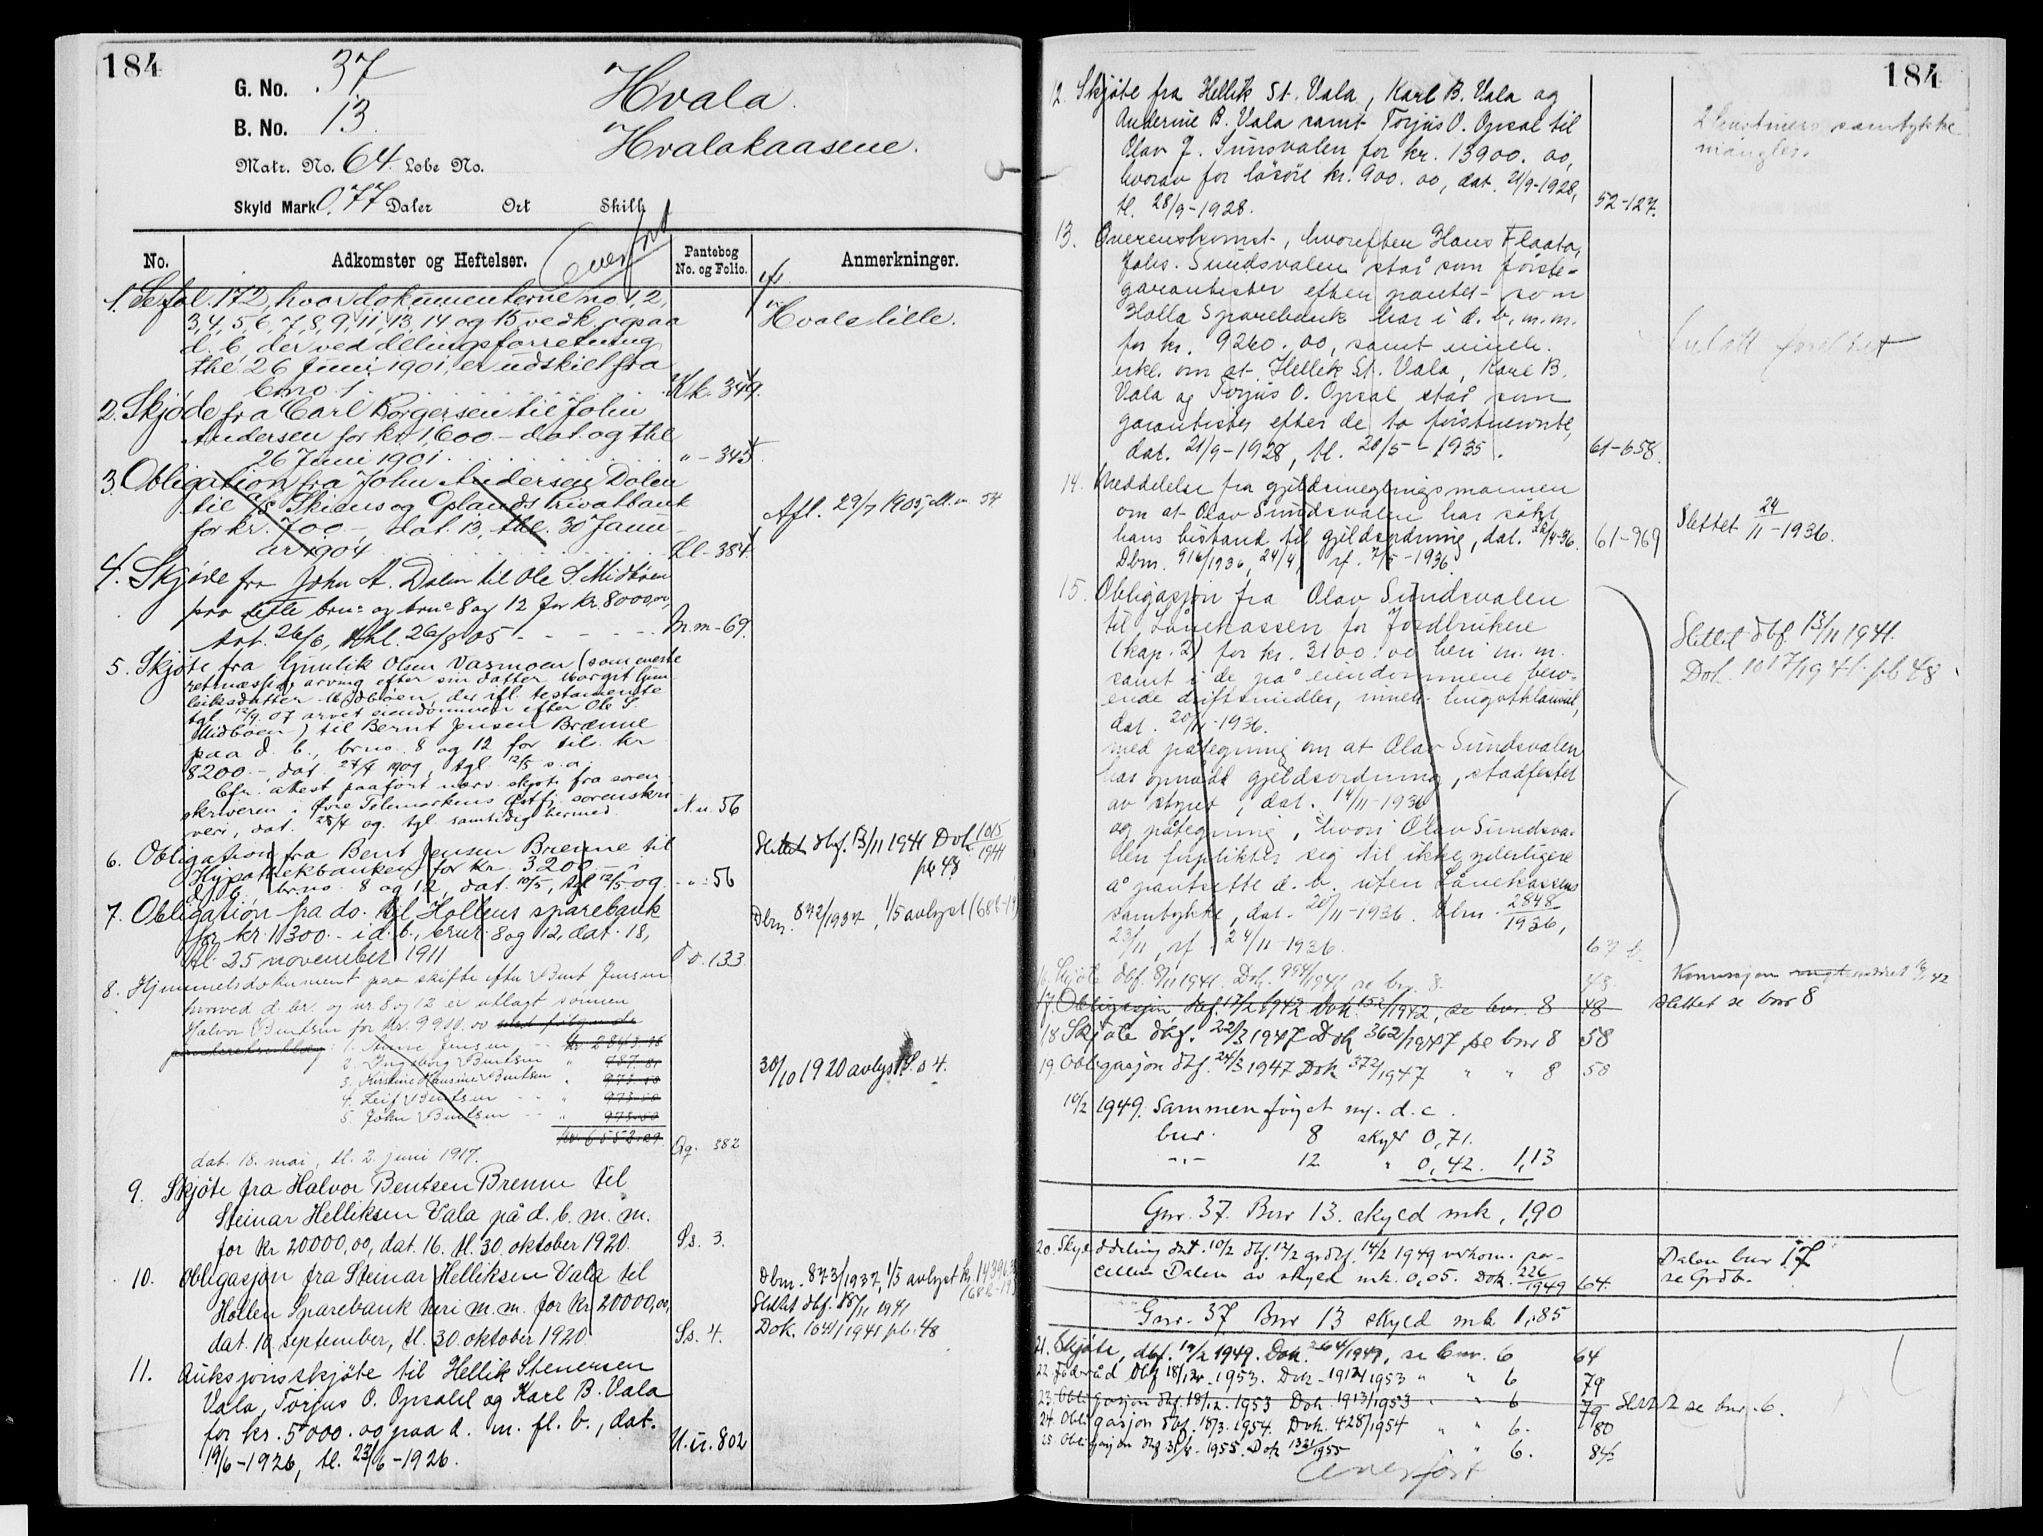 184
G. No. 37
B. No. 13.
Matr. No. 64. Løbe No.
Skyld Mark 0,77 Daler Ort Skill.
Hvala.
Hvalakaasene.
Overført
No.
Adkomster og Heftelser.
Pantebog No. og Folio.
Anmerkninger.
1. Se fol. 172, hvor dokumenterne no 1, 2,
3, 4, 5, 6, 7, 8, 9, 11, 13, 14 og 15 vedk. ogsaa
d. b. der ved delingsforretning
thl. 26 Juni 1901 er udskilt fra
bno 1. Kk. 349.
Hvalslille.
2. Skjøde fra Carl Borgersen til John
Andersen for kr 1,600 - dat. og thl.
26 Juni 1901 " - 345
3. Obligation fra John Andersen Dalen
til A/S Skiens og Oplands Privatbank
for kr. 700 - dat. 13, thl. 30 Janu
ar 1904 Ll - 384
Afl. 29/7 1905
4. Skjøde fra John A. Dalen til Ole S. Midbøen
paa dette brno og brno 8 og 12 for kr. 8000,00,
dat. 26/6, thl. 26/8 05 - - - - M.m - 69.
5. Skjøte fra Gunlik Olsen Vasmoen (som eneste
retmæssig arving efter sin datter Margit Gun-
leiksdatter Midbøen, der ifl. testamente
tgl. 12/9. 07 arvet eiendommen efter Ole S.
Midbøen) til Bernt Jensen Brænne
paa d. b., brno. 8 og 12 for tils. kr
8200 -, dat. 27/4 1909, tgl. 12/5 s. a.
Cfr. attest paaført nærv. skjøte fra soren-
skriveren i Øvre Telemarkens Østfj. sorenskri
veri, dat. 28/4 og tgl. samtidig hermed. N n. 56
6. Obligation fra Bent Jensen Brenne til
Hypothekbanken for kr. 3200 - i
d. b. brno. 8 og 12, dat. 10/5, tgl 12/5 09 - " - 56
Slettet dbf. 13/11 1941 Dok 1015/1941
pb 48
7. Obligation fra do. til Hollens sparebank
for kr. 1300 - i d. b., brnr. 8 og 12, dat. 18,
tl. 25 november 1911 O o. 133
Dbnr. 872/1937, 1/5 avlyst (686-19)
8. Hjemmelsdokument paa skifte efter Bent Jensen
hvorved d. br. og nr. 8 og 12 er utlagt sønnen
Halvor Bentsen for kr. 9900.00 med følgende
1. Anne Jensen - - kr 2843.
2. Ingeborg Bentsen " 787.81
3. Kirstine Hansine Bentsen " 973.00
4. Leif Bentsen - - " 973.00
5. John Bentsen - - " 973.00
dat. 18. mai, tl. 2. juni 1917. Qq. 382
30/10 1920 avlyst S. s 4.
9. Skjøte fra Halvor Bentsen Brenne til
Steinar Helliksen Vala på d. b. m. m.
for kr 20000,00, dat. 16. tl. 30. oktober 1920. Ss. 3.
10. Obligasjon fra Steinar Helliksen Vala til
Hollen Sparebank heri m. m. for kr. 20000,00,
dat. 10 september, tl. 30. oktober 1920. Ss. 4.
Dbnr. 873/1937, 1/5 avlyst
Slettet dbf. 18/11 1941
Dok. 1041/1941 pb. 48
11. Auksjonsskjøte til Hellik Stenersen
Vala, Torjus O. Opsahl og Karl B. Vala
for kr. 5000.00 paa d. m. fl. b., dat.
19/6 - 1926, tl. 23/6 - 1926. U. ü. 802
184
12. Skjøte fra Hellik St. Vala, Karl B. Vala og
Anderine B. Vala samt Torjus O. Opsal til
Olav J. Sunsvalen for kr. 13900.00,
hvorav for løsøre kr. 900.00, dat. 21/9 - 1928,
tl. 28/9 - 1928. 52-127.
samtykke
mangler.
13. Overenskomst, hvorefter Hans Flaata,
Johs. Sundsvalen står som første-
garantister efter pantet som
Holla Sparebank har i d. b. m. m.
for kr. 9260.00, samt
erkl. om at Hellik St. Vala, Karl B.
Vala og Torjus O. Opsal står som
garantister efter de to førstnevnte,
dat. 21/9 - 1928, tl. 20/5 - 1935. 61-658.
14. Meddelelse fra gjeldsmeglingsmannen
om at Olav Sundsvalen har søkt
hans bistand til gjeldsordning, dat. 22/4-36. 61-969
Dbnr. 916/1936, 24/4, rf. 7/5 - 1936.
Slettet 24/11 - 1936.
15. Obligasjon fra Olav Sundsvalen
til Lånekassen for Jordbrukere
(kap. 2) for kr. 3100.00 heri m. m.
samt i de på eiendommene bero-
ende driftsmidler,
dat. 20/11 - 1936.
med påtegning om at Olav Sundsvalen
har opnådd gjeldsordning, stadfestet
av styret, dat. 14/11 - 1936
og påtegning, hvori Olav Sundsva-
len forplikter sig til ikke yderligere
å pantsette d. b. uten Lånekassens
samtykke, dat. 20/11 - 1936. Dbnr. 2848/1936,
23/11, rf. 24/11 - 1936.
Slettet dbf. 13/11 1941.
Dok. 1017/1941. pb 48
16. Skjøte dbf. 8/11 1941. Dok. 994/1941 se bnr. 8. 48.
17. Obligasjon, dbf. 17/2 1942 Dok 152/1942, se bnr. 8 48
slettet se bnr 8
18 Skjøte dbf. 22/3 1947 Dok 362/1947 se bnr 8 58
19 Obligasjon dbf. 24/3 1947 Dok 372/1947 " " 8 58
10/2 1949. Sammenføyet m/. d. c.
bnr. 8 skyld 0,71.
- " - 12 " 0,42. 1,13
Gnr. 37. Bnr 13. skyld mk. 1,90
20. Skylddeling dat. 10/2 dbf. 12/2 grdbf. 14/2 1949 vedkom. par-
cellen Dalen av skyld mk. 0,05. Dok. 226/1949 64.
Dalen bnr 17
se Grdb.
Gnr. 37 Bnr 13 skyld mk 1,85
21. Skjøte, dbf. 19/2 1949. Dok. 264/1949, se bnr. 6 64
22. Føderåd dbf 18/12 - 1953. Dok - 1912/1953 " " 6 79
23. Obligasjon dbf. 18/12. 1953 Dok. 1913/1953 " " 6 79
Slettet se bnr. 6.
24. Obligasjon dbf. 18/3. 1954. Dok. 428/1954 " " 6. 80
25. Obligasjon dbf 31/8. 1955. Dok 1321/1955 " " 6. 84
Overført